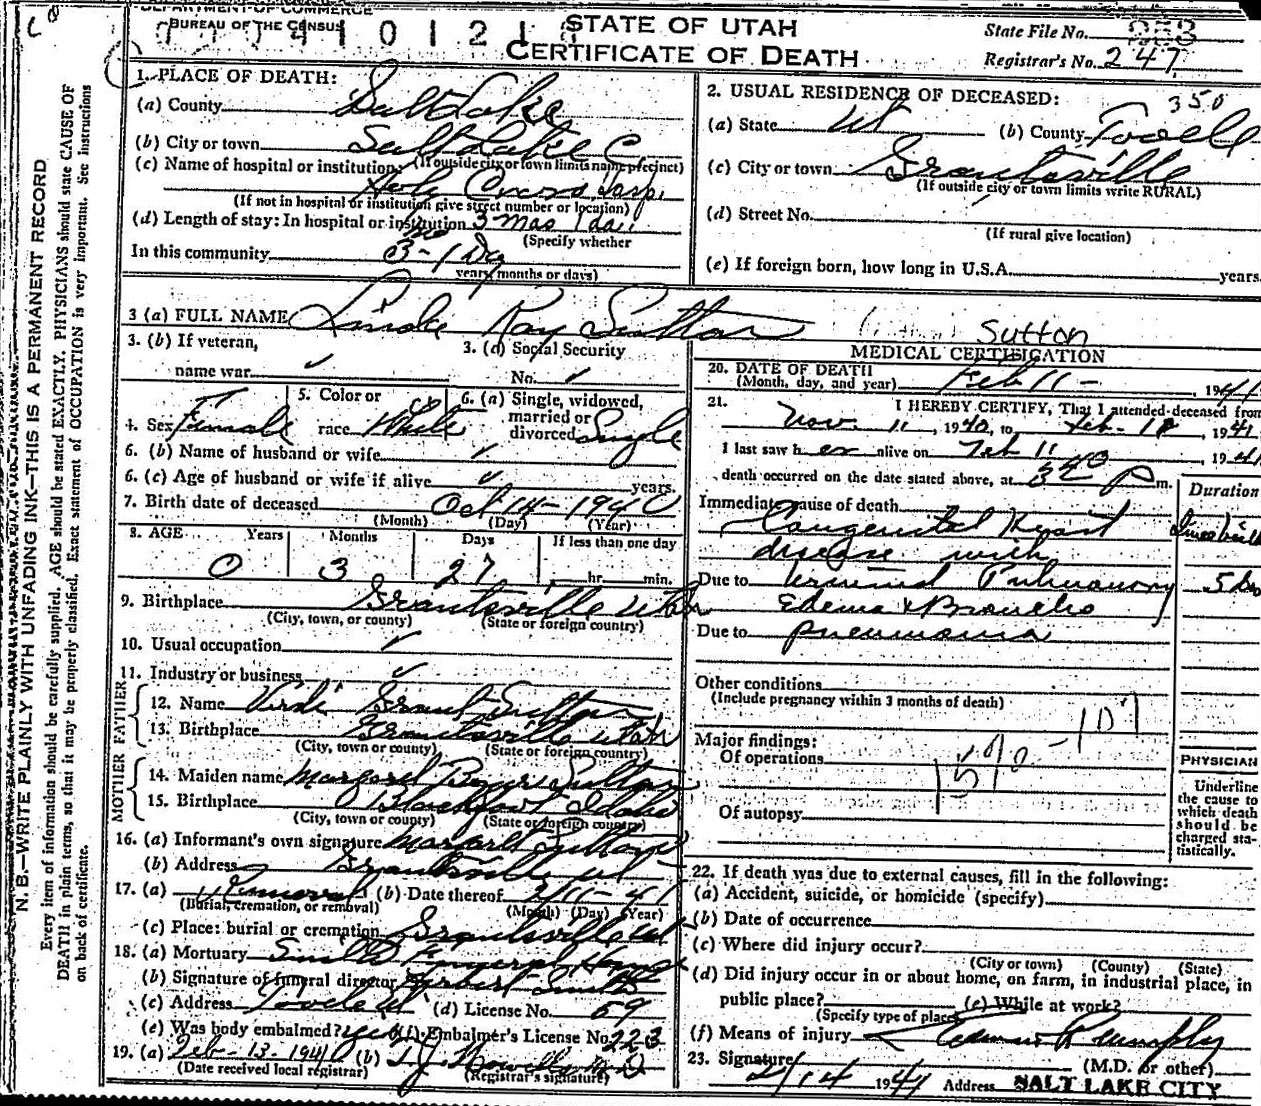 DEPARTMENT OF COMMERCE
BUREAU OF THE CENSUS
STATE OF UTAH
CERTIFICATE OF DEATH
State File No.
Registrar's No. 247
N. B.—WRITE PLAINLY WITH UNFADING INK—THIS IS A PERMANENT RECORD
Every item of information should be carefully supplied. AGE should be stated EXACTLY. PHYSICIANS should state CAUSE OF
DEATH in plain terms, so that it may be properly classified. Exact statement of OCCUPATION is very important. See instructions
on back of certificate.
1. PLACE OF DEATH:
(a) County Salt Lake
(b) City or town Salt Lake C
(If outside city or town limits name precinct)
(c) Name of hospital or institution:
Holy Cross Hosp.
(If not in hospital or institution give street number or location)
(d) Length of stay: In hospital or institution 3 mos 1 day
(Specify whether
In this community 3 mo - 1 Dy
years, months or days)
2. USUAL RESIDENCE OF DECEASED:
350
(a) State Ut (b) County Tooele
(c) City or town Grantsville
(If outside city or town limits write RURAL)
(d) Street No.
(If rural give location)
(e) If foreign born, how long in U.S.A. years.
3 (a) FULL NAME Linda Kay Sutton
Sutton
3. (b) If veteran,
name war ✓
3. (d) Social Security
No. ✓
4. Sex Female
5. Color or
race White
6. (a) Single, widowed,
married or
divorced Single
6. (b) Name of husband or wife ✓
6. (c) Age of husband or wife if alive ✓ years.
7. Birth date of deceased Oct 14 - 1940
(Month) (Day) (Year)
8. AGE Years Months Days If less than one day
0 3 27 hr. min.
9. Birthplace Grantsville Utah
(City, town, or county) (State or foreign country)
10. Usual occupation ✓
11. Industry or business ✓
FATHER
12. Name Grant Sutton
13. Birthplace Grantsville Utah
(City, town or county) (State or foreign country)
MOTHER
14. Maiden name Margaret Sutton
15. Birthplace Blackfoot Idaho
(City, town or county) (State or foreign country)
16. (a) Informant's own signature Margaret Sutton
(b) Address Grantsville Ut
17. (a) Removal (b) Date thereof 2/11-41
(Burial, cremation, or removal) (Month) (Day) (Year)
(c) Place: burial or cremation Grantsville Ut
18. (a) Mortuary Smith Funeral Home
(b) Signature of funeral director Herbert Smith
(c) Address Tooele Ut (d) License No. 59
(e) Was body embalmed? yes (f) Embalmer's License No. 223
19. (a) Feb - 13 - 1941 (b) M D
(Date received local registrar) (Registrar's signature)
MEDICAL CERTIFICATION
20. DATE OF DEATH
(Month, day, and year) Feb 11 - , 1941
21. I HEREBY CERTIFY, That I attended deceased from
Nov. 11, 1940, to Feb - , 1941
I last saw her alive on Feb 11 1941
death occurred on the date stated above, at P m.
Duration
Immediate cause of death
Congenital Heart Since birth
disease with
Due to terminal Pulmonary 5
Edema & Broncho
Due to pneumonia
Other conditions
(Include pregnancy within 3 months of death)
Major findings:
Of operations
Of autopsy
PHYSICIAN
Underline
the cause to
which death
should be
charged sta-
tistically.
22. If death was due to external causes, fill in the following:
(a) Accident, suicide, or homicide (specify)
(b) Date of occurrence
(c) Where did injury occur?
(City or town) (County) (State)
(d) Did injury occur in or about home, on farm, in industrial place, in
public place? (e) While at work?
(Specify type of place)
(f) Means of injury
23. Signature
(M.D. or other)
2/14 1941 Address SALT LAKE CITY